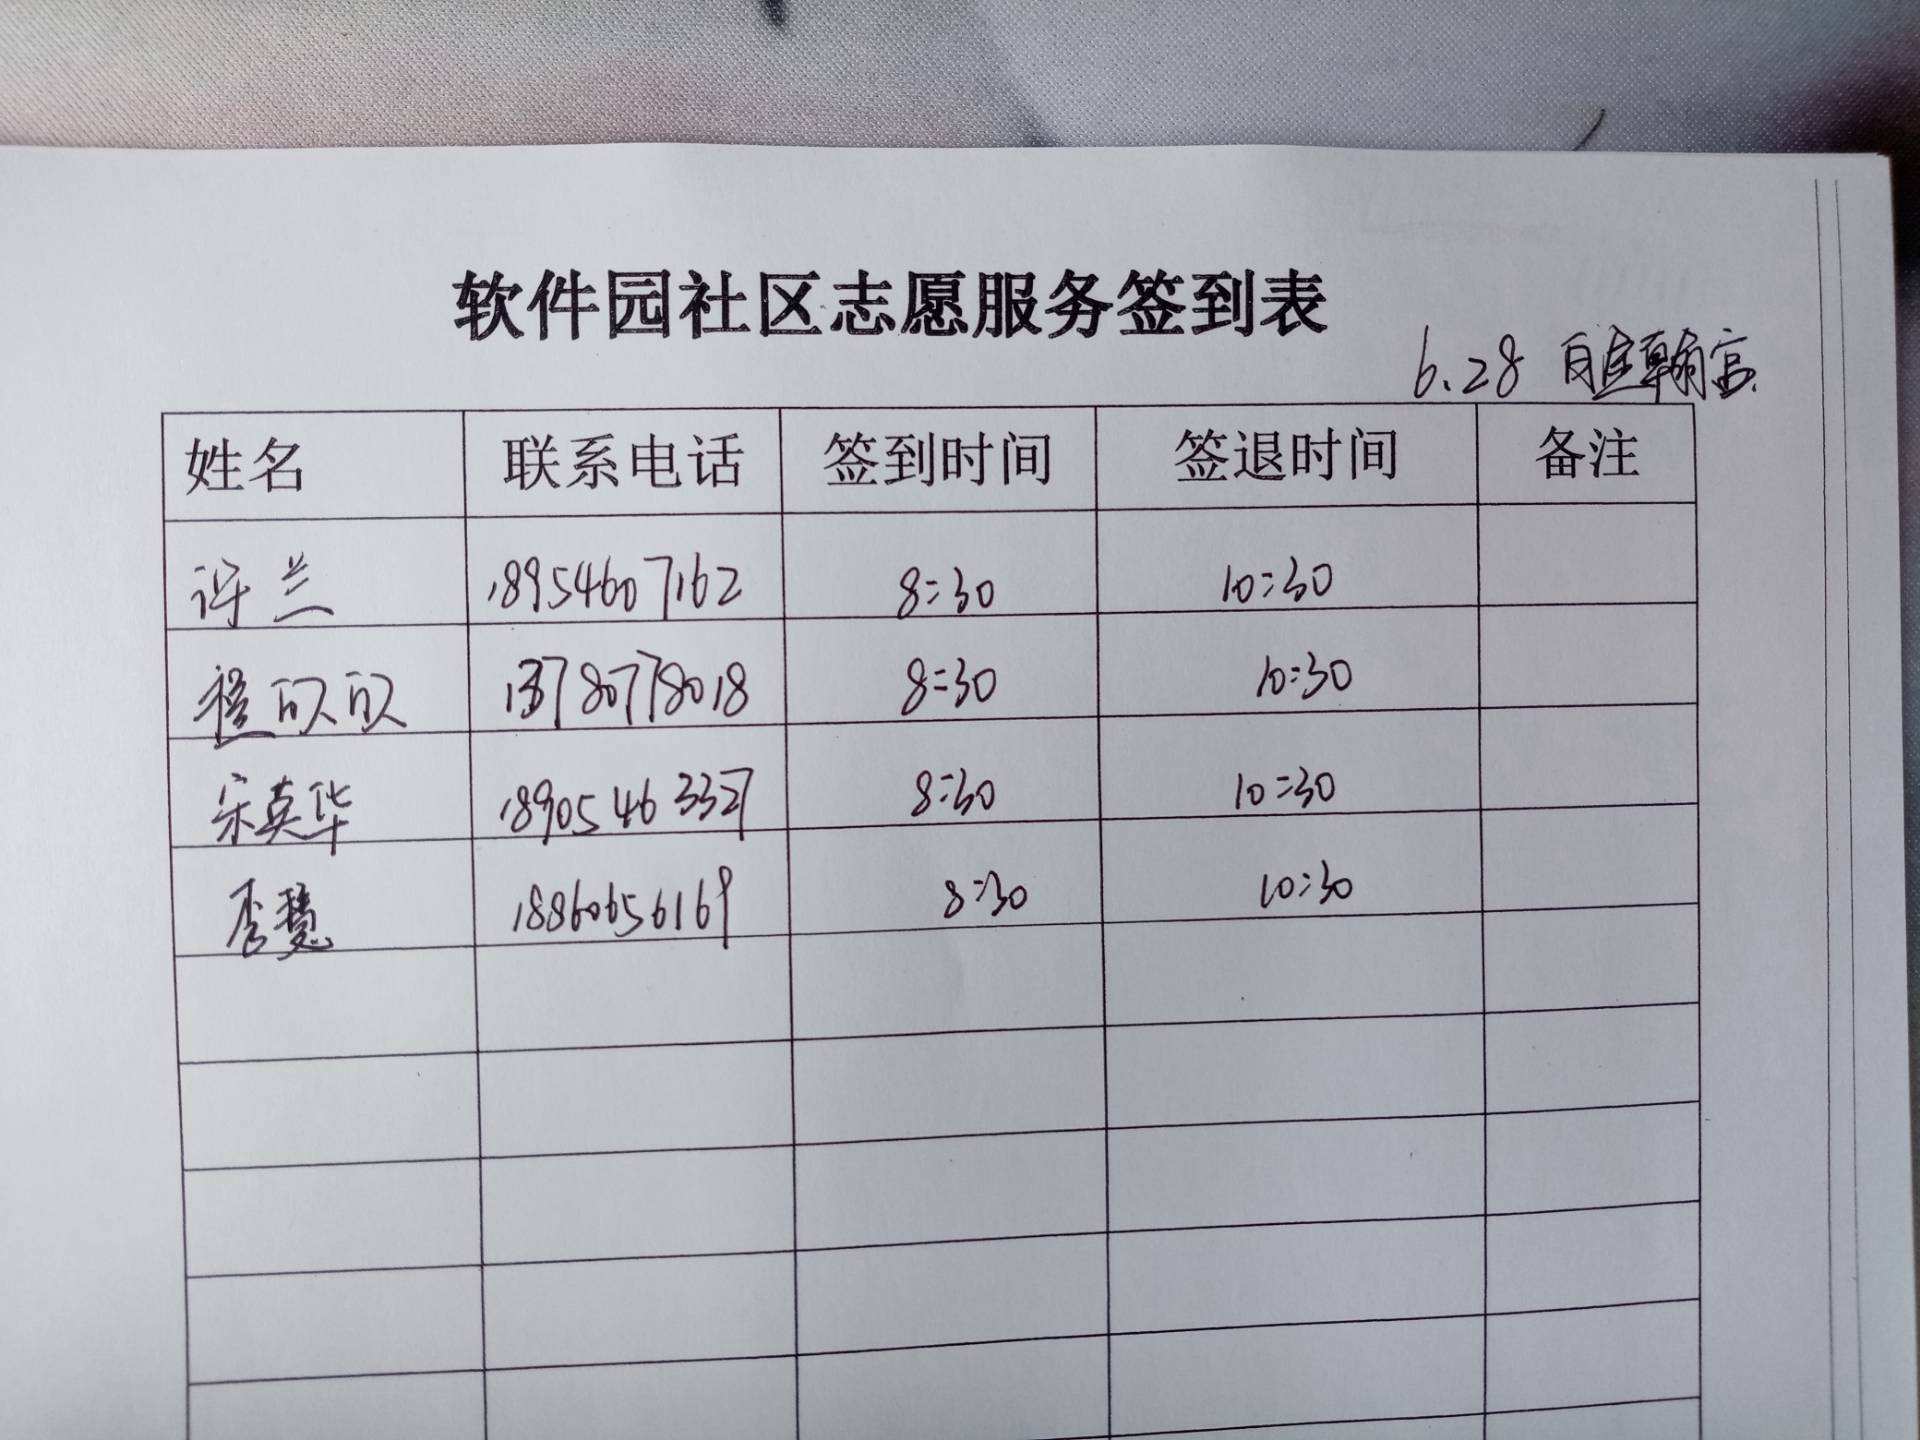 软件园社区志愿服务签到表
6.28
姓名 联系电话 签到时间 签退时间 备注
许兰 18954607162 8:30 10:30
程欧欧 13780778018 8:30 10:30
宋英华 18905463327 8:30 10:30
李慧 18860656169 8:30 10:30